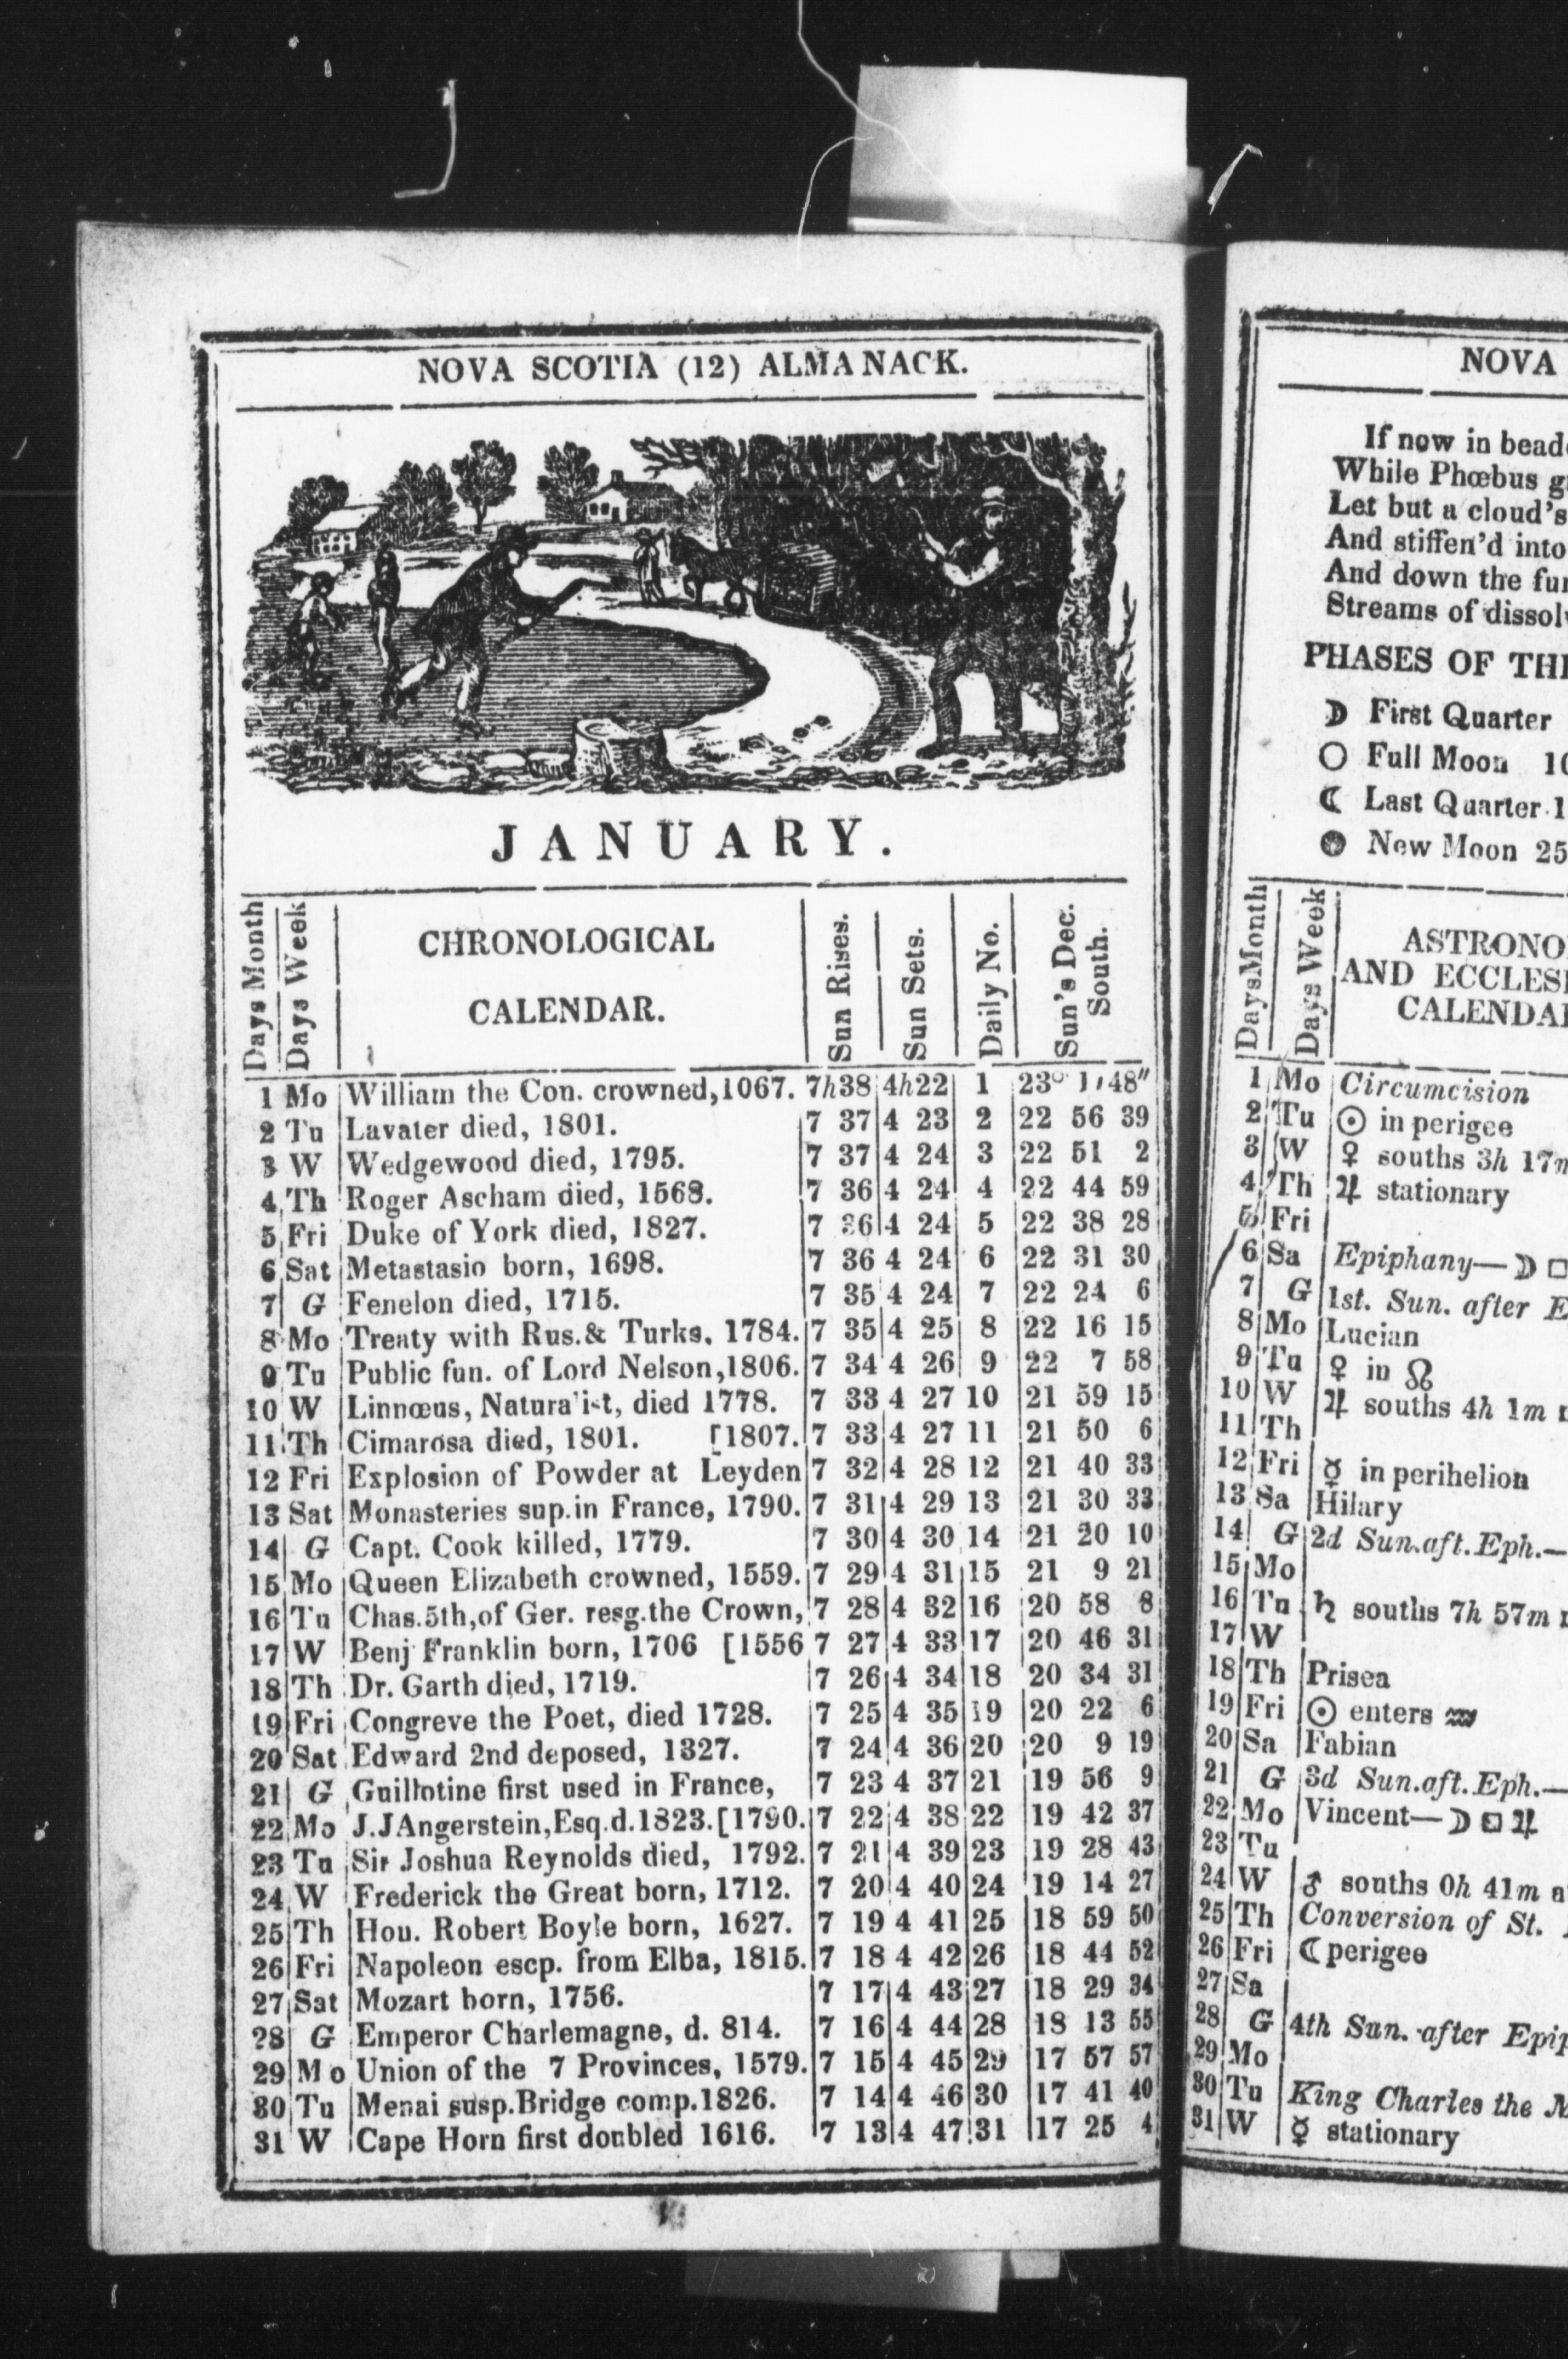 NOVA SCOTIA (12) ALMANACK.
JANUARY.
Days Month
Days Week
CHRONOLOGICAL
CALENDAR.
Sun Rises.
Sun Sets.
Daily No.
Sun's Dec. South.
1 Mo William the Con. crowned,1067. 7h38 4h22 1 23° 1'48"
2 Tu Lavater died, 1801. 7 37 4 23 2 22 56 39
3 W Wedgewood died, 1795. 7 37 4 24 3 22 51 2
4 Th Roger Ascham died, 1568. 7 36 4 24 4 22 44 59
5 Fri Duke of York died, 1827. 7 36 4 24 5 22 38 28
6 Sat Metastasio born, 1698. 7 36 4 24 6 22 31 30
7 G Fenelon died, 1715. 7 35 4 24 7 22 24 6
8 Mo Treaty with Rus.& Turks, 1784. 7 35 4 25 8 22 16 15
9 Tu Public fun. of Lord Nelson,1806. 7 34 4 26 9 22 7 58
10 W Linnœus, Natura'ist, died 1778. 7 33 4 27 10 21 59 15
11 Th Cimarosa died, 1801. [1807. 7 33 4 27 11 21 50 6
12 Fri Explosion of Powder at Leyden 7 32 4 28 12 21 40 33
13 Sat Monasteries sup.in France, 1790. 7 31 4 29 13 21 30 33
14 G Capt. Cook killed, 1779. 7 30 4 30 14 21 20 10
15 Mo Queen Elizabeth crowned, 1559. 7 29 4 31 15 21 9 21
16 Tu Chas.5th,of Ger. resg.the Crown, 7 28 4 32 16 20 58 8
17 W Benj Franklin born, 1706 [1556 7 27 4 33 17 20 46 31
18 Th Dr. Garth died, 1719. 7 26 4 34 18 20 34 31
19 Fri Congreve the Poet, died 1728. 7 25 4 35 19 20 22 6
20 Sat Edward 2nd deposed, 1327. 7 24 4 36 20 20 9 19
21 G Guillotine first used in France, 7 23 4 37 21 19 56 9
22 Mo J.JAngerstein,Esq.d.1823.[1790. 7 22 4 38 22 19 42 37
23 Tu Sir Joshua Reynolds died, 1792. 7 21 4 39 23 19 28 43
24 W Frederick the Great born, 1712. 7 20 4 40 24 19 14 27
25 Th Hou. Robert Boyle born, 1627. 7 19 4 41 25 18 59 50
26 Fri Napoleon escp. from Elba, 1815. 7 18 4 42 26 18 44 52
27 Sat Mozart born, 1756. 7 17 4 43 27 18 29 34
28 G Emperor Charlemagne, d. 814. 7 16 4 44 28 18 13 55
29 Mo Union of the 7 Provinces, 1579. 7 15 4 45 29 17 57 57
30 Tu Menai susp.Bridge comp.1826. 7 14 4 46 30 17 41 40
31 W Cape Horn first doubled 1616. 7 13 4 47 31 17 25 4
NOVA
If now in bead
While Phœbus g
Let but a cloud's
And stiffen'd into
And down the fur
Streams of dissolv
PHASES OF THE
☽ First Quarter
○ Full Moon 10
☾ Last Quarter 1
● New Moon 25
Days Month
Days Week
ASTRONO
AND ECCLESI
CALENDA
1 Mo Circumcision
2 Tu ☉ in perigee
3 W ♀ souths 3h 17m
4 Th ♃ stationary
5 Fri
6 Sa Epiphany—☽ □
7 G 1st. Sun. after E
8 Mo Lucian
9 Tu ♀ in ☊
10 W ♃ souths 4h 1m
11 Th
12 Fri ☿ in perihelion
13 Sa Hilary
14 G 2d Sun.aft.Eph.—
15 Mo
16 Tu ♄ souths 7h 57m
17 W
18 Th Prisea
19 Fri ☉ enters ♒
20 Sa Fabian
21 G 3d Sun.aft.Eph.—
22 Mo Vincent—☽ □ ♃
23 Tu
24 W ♂ souths 0h 41m a
25 Th Conversion of St.
26 Fri ☾ perigee
27 Sa
28 G 4th Sun. after Epip
29 Mo
30 Tu King Charles the M
31 W ☿ stationary